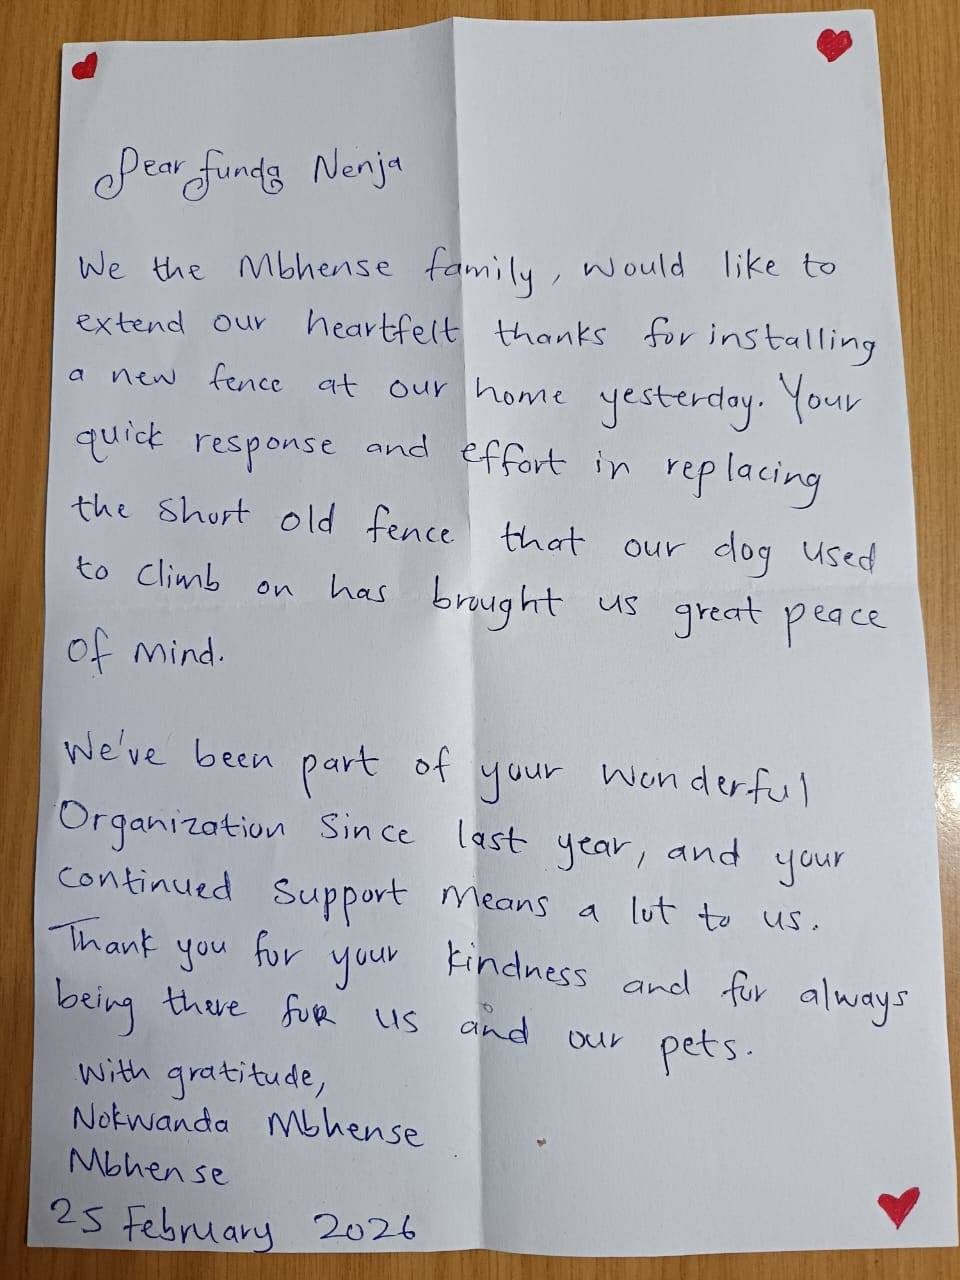 Dear Funda Nenja
We the Mbhense family, would like to
extend our heartfelt thanks for installing
a new fence at our home yesterday. Your
quick response and effort in replacing
the short old fence that our dog used
to climb on has brought us great peace
of mind.
We've been part of your wonderful
Organization since last year, and your
continued support means a lot to us.
Thank you for your kindness and for always
being there for us and our pets.
With gratitude,
Nokwanda Mbhense
Mbhense
25 February 2026